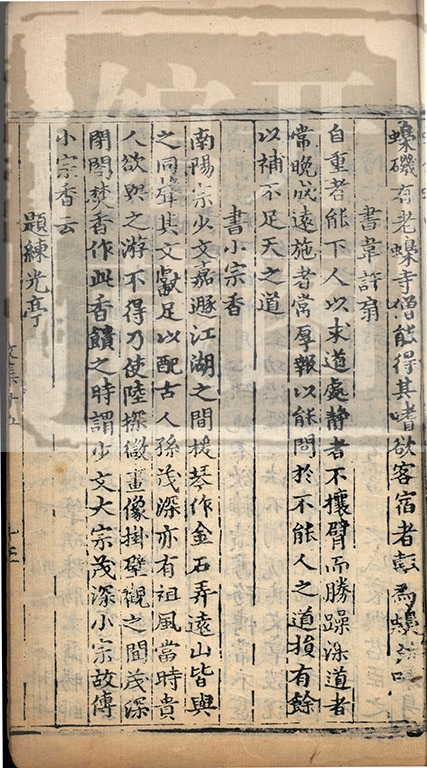 蟂磯有老蟂寺僧能得其嗜欲客宿者
書韋許扇
自重者能下人以求道處静者不攘臂而勝躁涉道者
常晚成遠施者常厚報以能問於不能人之道損有餘
以補不足天之道
書小宗香
南陽宗少文嘉遯江湖之間援琴作金石弄遠山皆與
之同聲其文獻足以配古人孫茂深亦有祖風當時貴
人欲與之游不得乃使陸探微畫像掛壁觀之聞茂深
閉閤焚香作此香饋之時謂少文大宗茂深小宗故傳
小宗香云
題練光亭